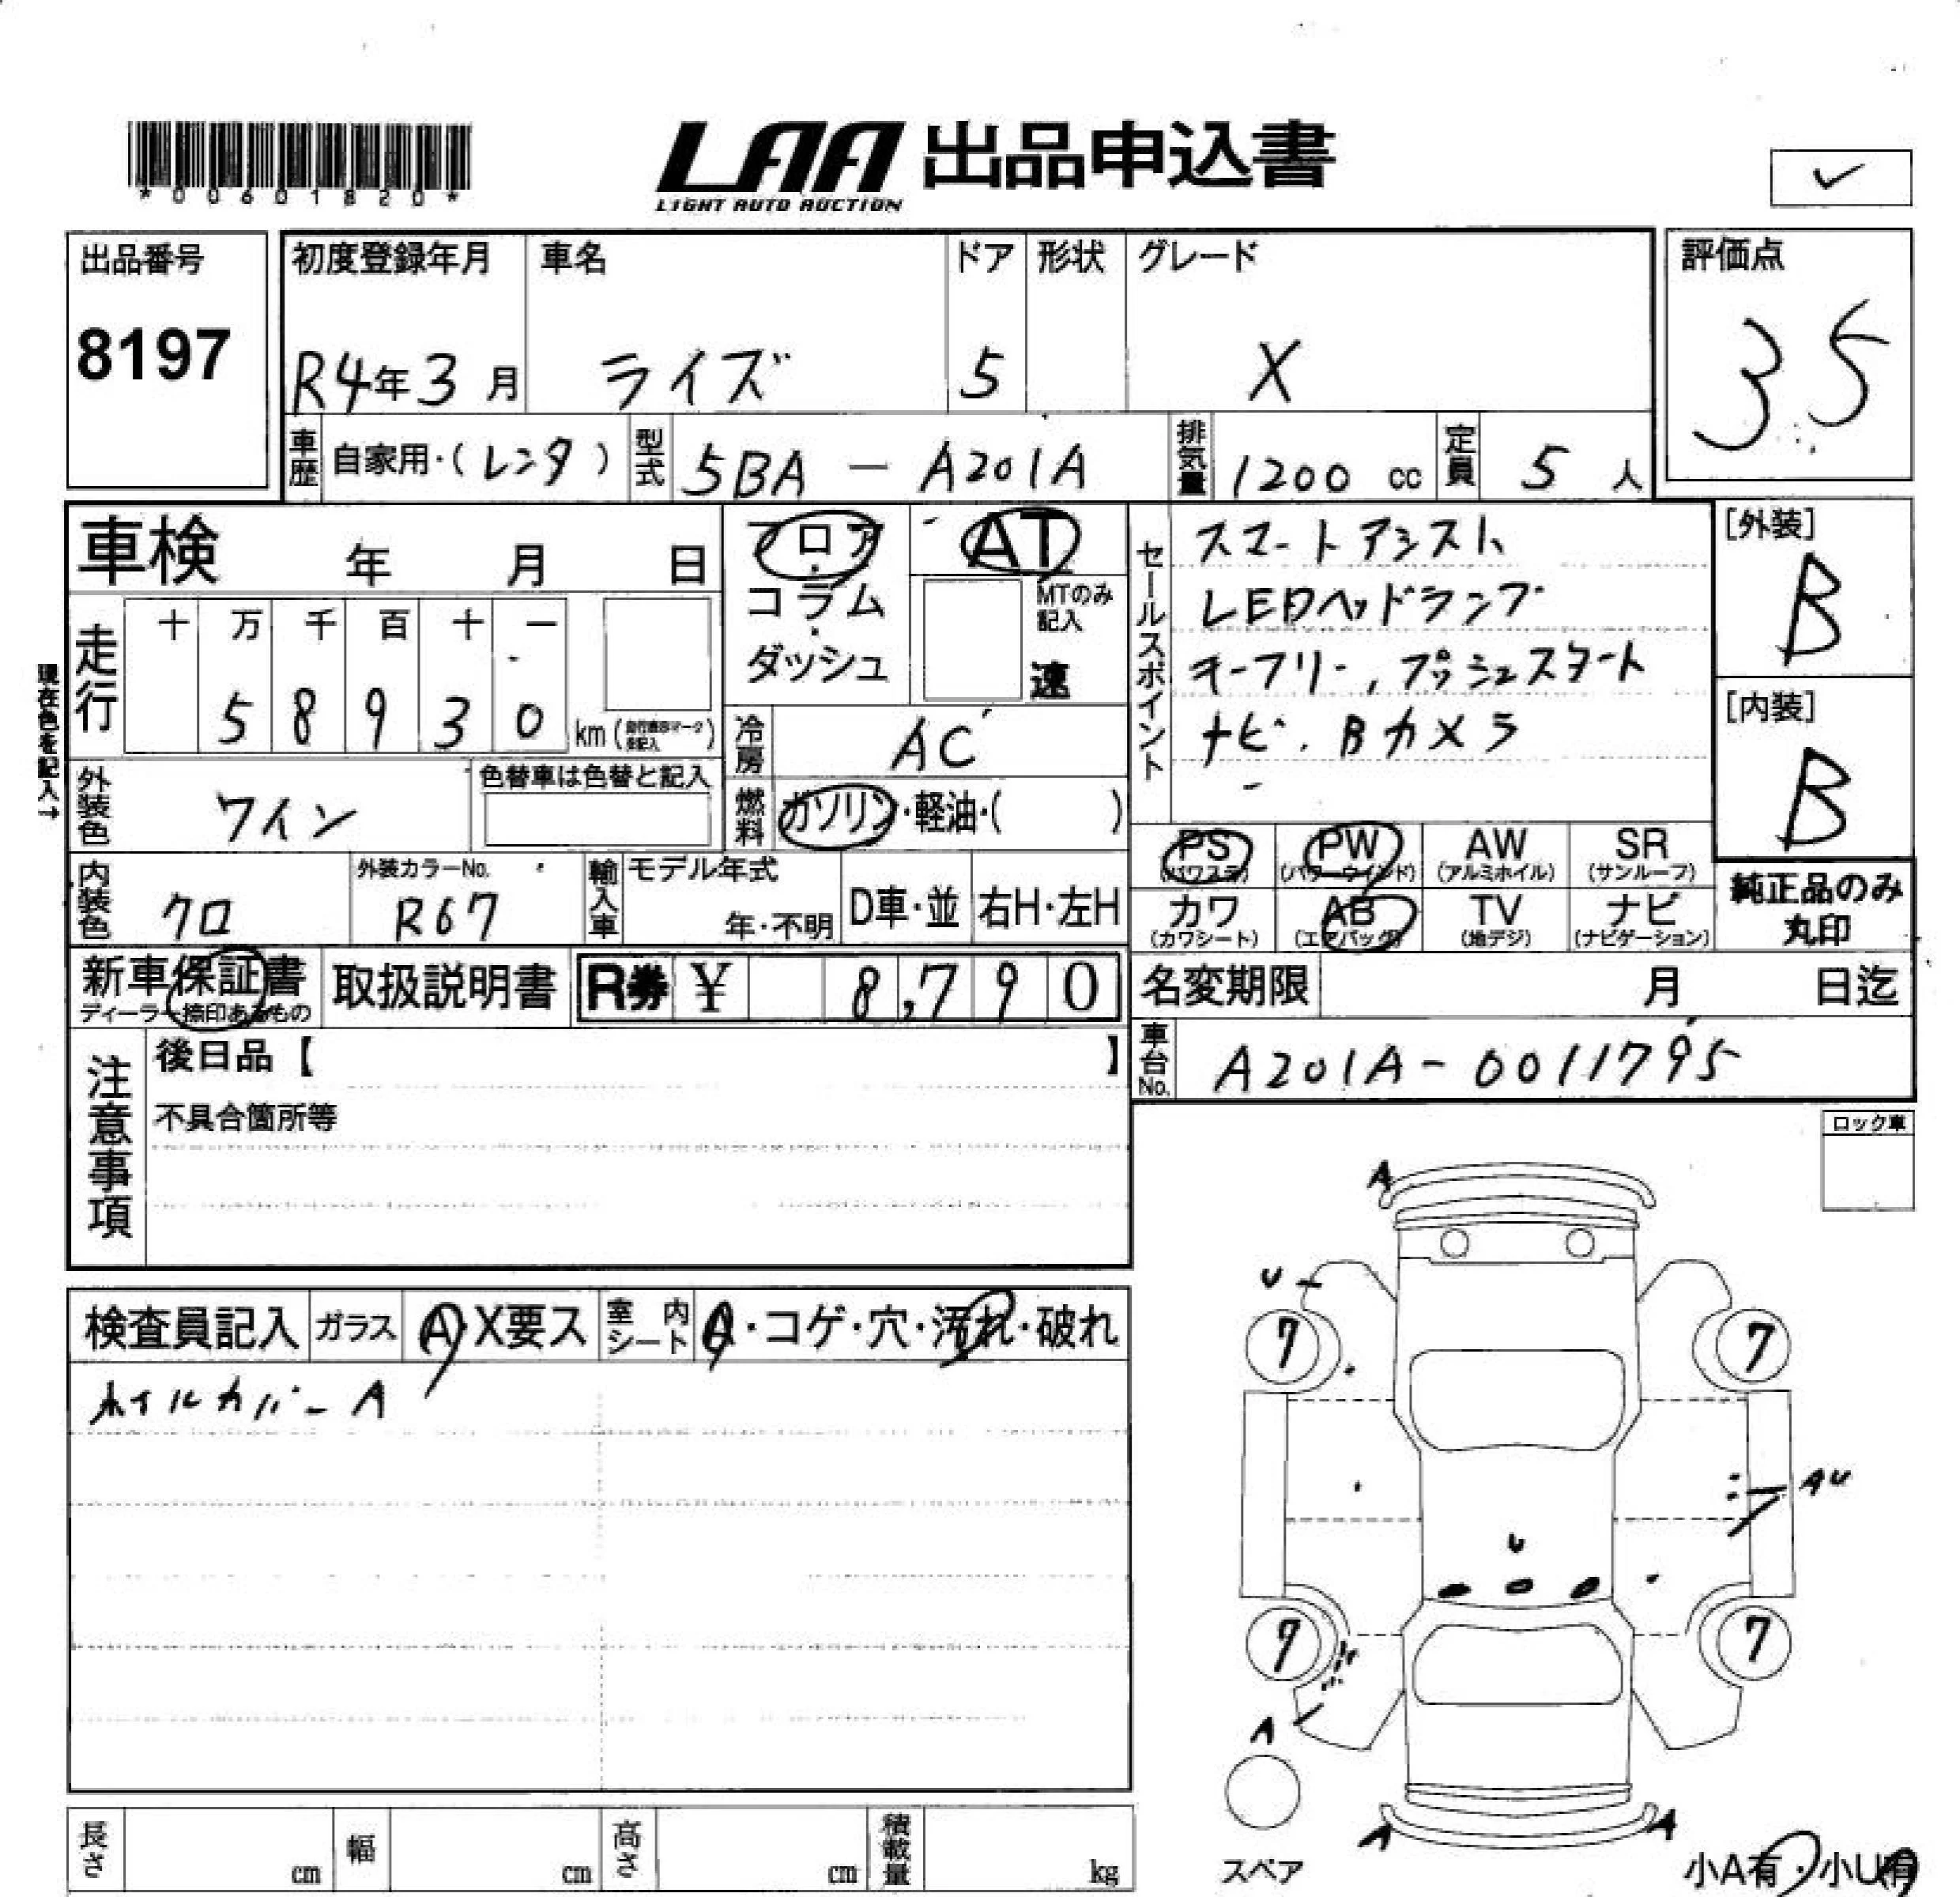 *00601820*
LAA 出品申込書
LIGHT AUTO AUCTION
✓
出品番号
8197
初度登録年月 車名 ドア 形状 グレード
R4年3月 ライズ 5 X
評価点
3.5
車歴 自家用・(レンタ) 型式 5BA - A201A 排気量 1200 cc 定員 5 人
車検 年 月 日
フロア・コラム・ダッシュ
AT
MTのみ記入
速
セールスポイント
スマートアシスト、
LEDヘッドランプ
キーフリー、プッシュスタート
ナビ、Bカメラ
[外装]
B
[内装]
B
現在色を記入→
走行 十 万 千 百 十 一
5 8 9 3 0 km
冷房 AC
燃料 ガソリン・軽油・( )
外装色 ワイン 色替車は色替と記入
PS (パワステ) PW (パワーウインド) AW (アルミホイル) SR (サンルーフ)
カワ (カワシート) AB (エアバッグ) TV (地デジ) ナビ (ナビゲーション)
純正品のみ
丸印
内装色 クロ 外装カラーNo. R67 輸入車 モデル年式 年・不明 D車・並 右H・左H
新車保証書 取扱説明書 R券 ¥ 8,790 名変期限 月 日迄
ディーラー捺印あるもの
車台No. A201A-0011795
注意事項
後日品【 】
不具合箇所等
ロック車
検査員記入 ガラス A・X要ス 室内シート A・コゲ・穴・汚れ・破れ
ホイルカバーA
A
U
7 7
AU
U
9 7
A
A A
スペア
小A有・小U有
長さ cm 幅 cm 高さ cm 積載量 kg